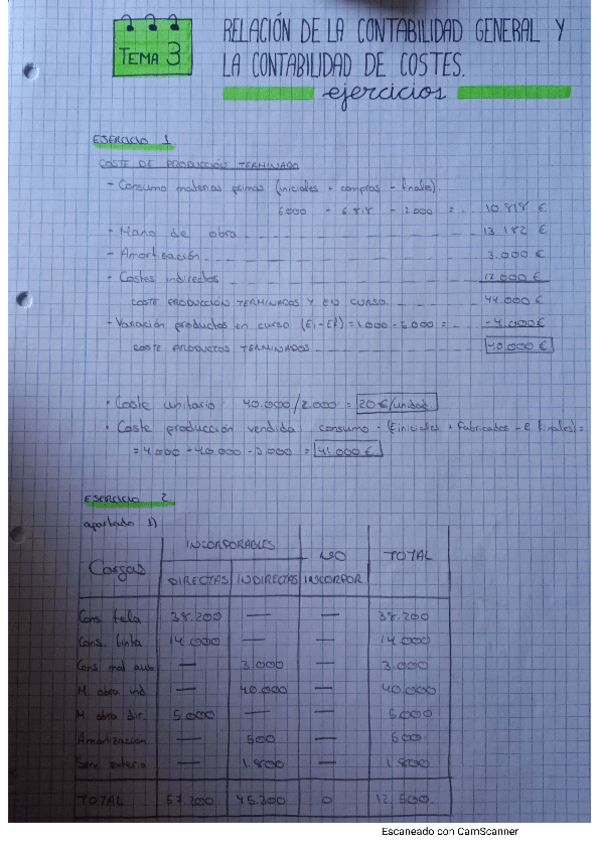 TEMA 3
RELACIÓN DE LA CONTABILIDAD GENERAL Y
LA CONTABILIDAD DE COSTES.
ejercicios
EJERCICIO 1
COSTE DE PRODUCCIÓN TERMINADO
- Consumo materias primas (iniciales + compras - finales)
6.000 - 6.818 - 2.000 = 10.818 €
- Mano de obra 13.182 €
- Amortización 3.000 €
- Costes indirectos 17.000 €
COSTE PRODUCCIÓN TERMINADOS Y EN CURSO 44.000 €
- Variación productos en curso (Ei-Ef) = 1.000 - 5.000 = -4.000 €
COSTE PRODUCTOS TERMINADOS 40.000 €
• Coste unitario: 40.000/2.000 = 20€/unidad
• Coste producción vendida: consumo (E iniciales + Fabricados - E finales) =
= 4.000 - 40.000 - 3.000 = 41.000 €
EJERCICIO 2
apartado 1)
INCORPORABLES NO TOTAL
Cargas DIRECTAS INDIRECTAS INCORPOR
Cons. tela 38.200 — — 38.200
Cons. tinta 14.000 — — 14.000
Cons mat aux — 3.000 — 3.000
M. obra ind — 40.000 — 40.000
M. obra dir. 5.000 — — 5.000
Amortización — 500 — 500
Serv. exterio — 1.800 — 1.800
TOTAL 57.200 45.300 0 12.500.
Escaneado con CamScanner